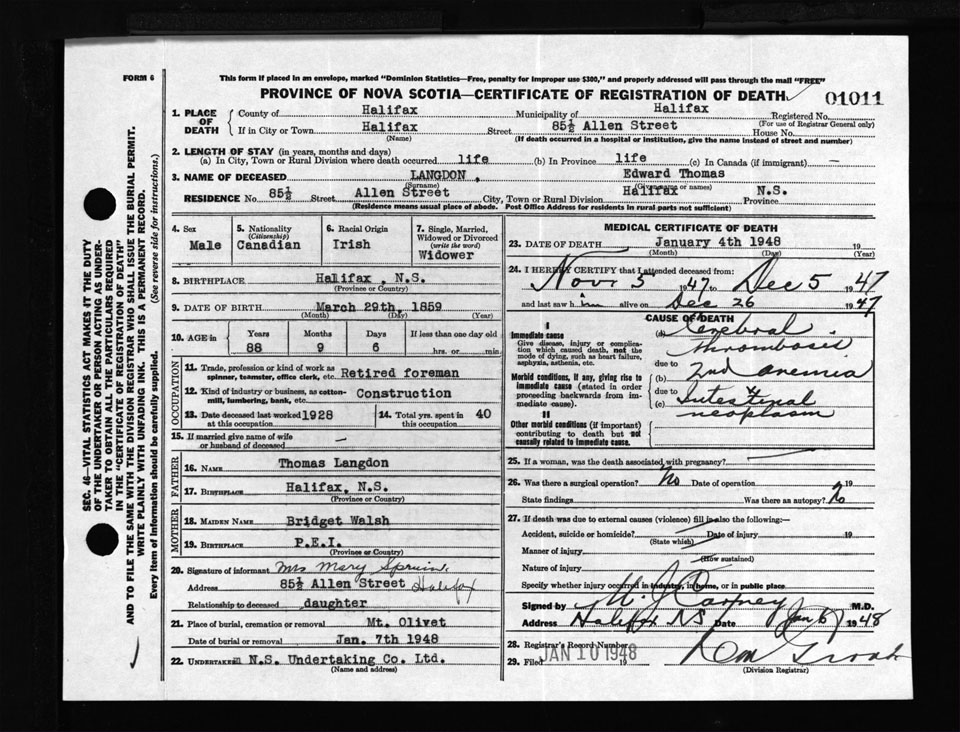 FORM 6
This form if placed in an envelope, marked "Dominion Statistics—Free, penalty for improper use $300," and properly addressed will pass through the mail "FREE"
PROVINCE OF NOVA SCOTIA—CERTIFICATE OF REGISTRATION OF DEATH
01011
1. PLACE OF DEATH { County of Halifax Municipality of Halifax Registered No.
(For use of Registrar General only)
If in City or Town Halifax Street 85½ Allen Street House No.
(Name) (If death occurred in a hospital or institution, give the name instead of street and number)
2. LENGTH OF STAY (in years, months and days)
(a) In City, Town or Rural Division where death occurred life (b) In Province life (c) In Canada (if immigrant) —
3. NAME OF DECEASED LANGDON, Edward Thomas
(Surname) (Given name or names)
RESIDENCE No. 85½ Street Allen Street City, Town or Rural Division Halifax Province N.S.
(Residence means usual place of abode. Post Office Address for residents in rural parts not sufficient)
4. Sex Male
5. Nationality (Citizenship) Canadian
6. Racial Origin Irish
7. Single, Married, Widowed or Divorced (write the word) Widower
8. BIRTHPLACE Halifax, N.S.
(Province or Country)
9. DATE OF BIRTH March 29th, 1859
(Month) (Day) (Year)
10. AGE in { Years 88 Months 9 Days 6 If less than one day old hrs. or min.
OCCUPATION
11. Trade, profession or kind of work as spinner, teamster, office clerk, etc. Retired foreman
12. Kind of industry or business, as cotton-mill, lumbering, bank, etc. Construction
13. Date deceased last worked at this occupation 1928
14. Total yrs. spent in this occupation 40
15. If married give name of wife or husband of deceased —
FATHER
16. NAME Thomas Langdon
17. BIRTHPLACE Halifax, N.S.
(Province or Country)
MOTHER
18. MAIDEN NAME Bridget Walsh
19. BIRTHPLACE P.E.I.
(Province or Country)
20. Signature of informant Mrs Mary
Address 85½ Allen Street Halifax
Relationship to deceased daughter
21. Place of burial, cremation or removal Mt. Olivet
Date of burial or removal Jan. 7th 1948
22. UNDERTAKER N.S. Undertaking Co. Ltd.
(Name and address)
MEDICAL CERTIFICATE OF DEATH
23. DATE OF DEATH January 4th 1948 19
(Month) (Day) (Year)
24. I HEREBY CERTIFY that I attended deceased from:
Nov 5 1947 to Dec 5 1947
and last saw him alive on Dec 26 1947
CAUSE OF DEATH
I
Immediate cause
Give disease, injury or complication which caused death, not the mode of dying, such as heart failure, asphyxia, asthenia, etc.
(a) Cerebral thrombosis
due to
Morbid conditions, if any, giving rise to immediate cause (stated in order proceeding backwards from immediate cause).
(b) 2nd anemia
due to
(c) Intestinal neoplasm
II
Other morbid conditions (if important) contributing to death but not causally related to immediate cause.
25. If a woman, was the death associated with pregnancy?
26. Was there a surgical operation? No Date of operation 19
State findings Was there an autopsy? No
27. If death was due to external causes (violence) fill in also the following:—
Accident, suicide or homicide? Date of injury 19
(State which)
Manner of injury
(How sustained)
Nature of injury
Specify whether injury occurred in industry, in home, or in public place
Signed by M. J. Carney M.D.
Address Halifax NS Date Jan 6 1948
28. Registrar's Record Number
29. Filed JAN 10 1948 19
(Division Registrar)
SEC. 46—VITAL STATISTICS ACT MAKES IT THE DUTY
OF THE UNDERTAKER OR PERSON ACTING AS UNDER-
TAKER TO OBTAIN ALL THE PARTICULARS REQUIRED
IN THE "CERTIFICATE OF REGISTRATION OF DEATH"
AND TO FILE THE SAME WITH THE DIVISION REGISTRAR WHO SHALL ISSUE THE BURIAL PERMIT.
WRITE PLAINLY WITH UNFADING INK. THIS IS A PERMANENT RECORD.
Every item of information should be carefully supplied. (See reverse side for instructions.)